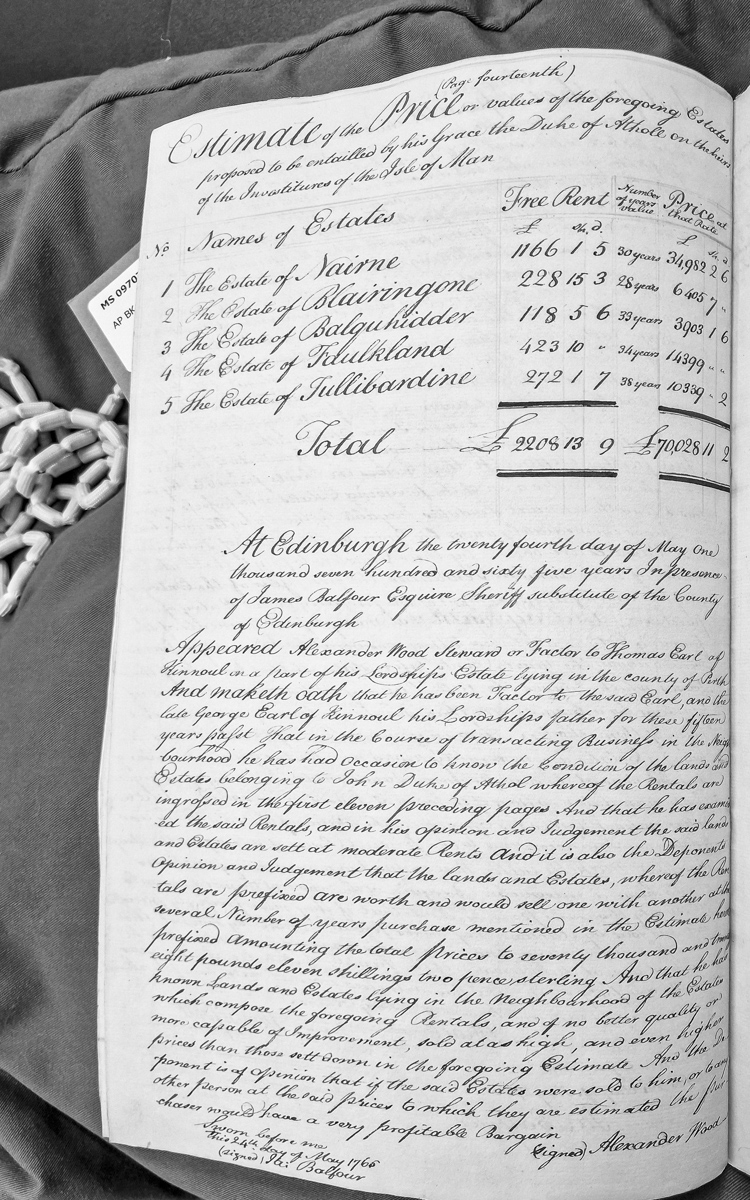 (Page fourteenth)
Estimate of the Price or values of the foregoing Estates
proposed to be entailled by his Grace the Duke of Atholl on the heirs
of the Investitures of the Isle of Man
No. Names of Estates Free Rent Number of years value Price at that Rate
£ sh. d. £ sh. d
1 The Estate of Nairne 1166 1 5 30 years 34,982 2 6
2 The Estate of Blairingone 228 15 3 28 years 6405 7 "
3 The Estate of Balquhidder 118 5 6 33 years 3903 1 6
4 The Estate of Faulkland 423 10 " 34 years 14399 " "
5 The Estate of Tullibardine 272 1 7 38 years 10339 " 2
Total £ 2208 13 9 £70,028 11 2
MS 0970
AP BK
At Edinburgh the twenty fourth day of May One
thousand seven hundred and sixty five years In presence
of James Balfour Esquire Sheriff substitute of the County
of Edinburgh
Appeared Alexander Wood Steward or Factor to Thomas Earl of
Kinnoul in a part of his Lordships Estate lying in the county of Perth
And maketh oath that he has been Factor to the said Earl, and the
late George Earl of Kinnoul his Lordships father for these fifteen
years past That in the Course of transacting Business in the Neigh
bourhood he has had occasion to know the Condition of the lands and
Estates belonging to John Duke of Athol whereof the Rentals are
ingrossed in the first eleven preceding pages And that he has examin
ed the said Rentals, and in his opinion and Judgement the said lands
and Estates are sett at moderate Rents And it is also the Deponents
Opinion and Judgement that the lands and Estates, whereof the Ren
tals are prefixed are worth and would sell one with another at the
several Number of years purchase mentioned in the Estimate here
prefixed amounting the total Prices to seventy thousand and twenty
eight pounds eleven shillings two pence sterling And that he has
known Lands and Estates lying in the Neighbourhood of the Estates
which compose the foregoing Rentals, and of no better quality or
more capable of Improvement, sold at as high, and even higher
prices than those sett down in the foregoing Estimate And the De
ponent is of opinion that if the said Estates were sold to him, or to any
other person at the said prices to which they are estimated the pur
chaser would have a very profitable Bargain
Sworn before me (signed) Alexander Wood
this 24th day of May 1765
(signed) Ja: Balfour